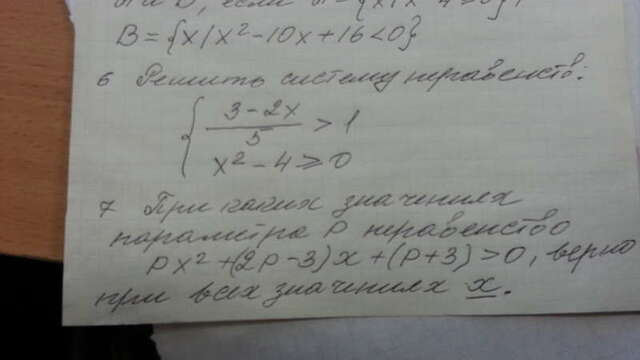 если
B = {x/x² - 10x + 16 < 0}
6 Решить систему неравенств:
{ (3 - 2x)/5 > 1
x² - 4 ≥ 0
7 При каких значениях
параметра p неравенство
px² + (2p - 3)x + (p + 3) > 0, верно
при всех значениях x.